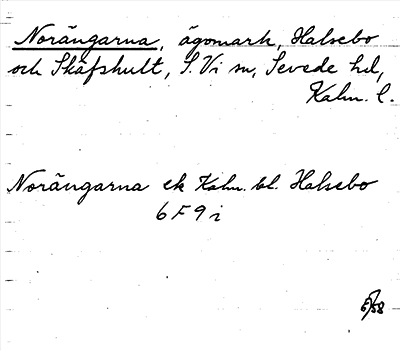 Norängarna, ägomark, Halsebo
och Skäfshult, S. Vi sn, Sevede hd,
Kalm. l.
Norängarna ek Kalm. bl. Halsebo
6 F 9 i